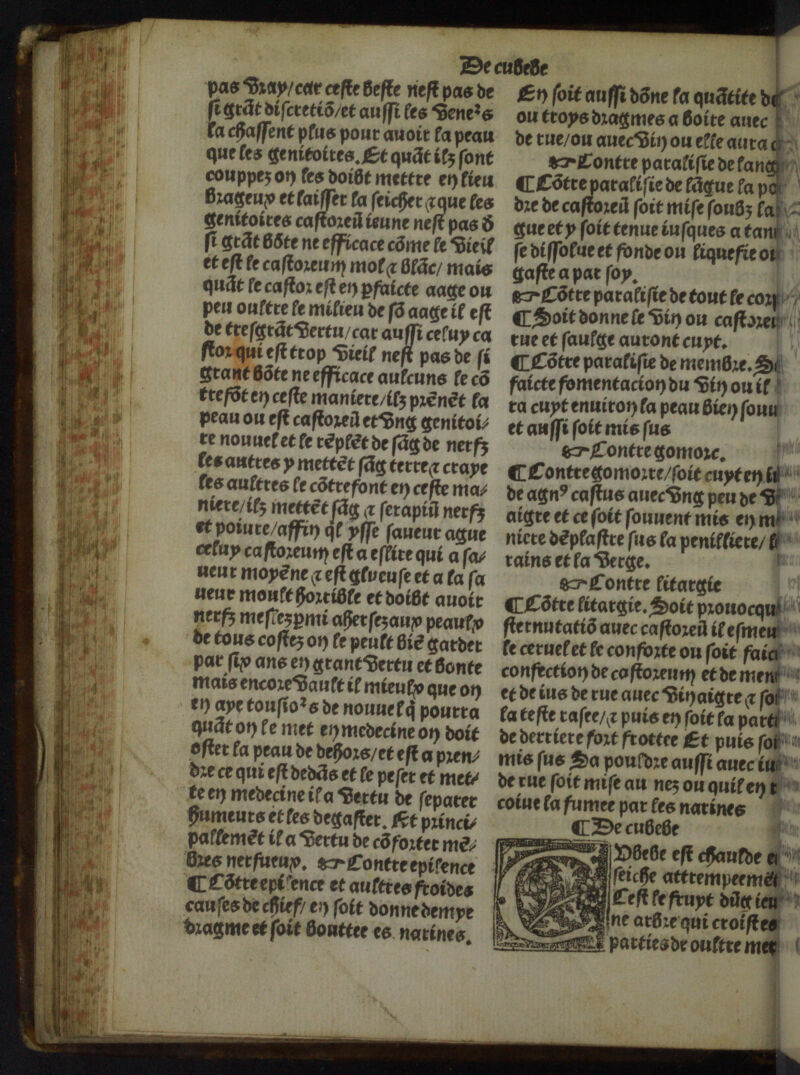 De cubebe
pas vray/car ceste beste nest pas de
si grãt discretiõ/et aussi les veneˀs
la chassent plus pour auoir la peau
que les genitoires. Et quãt ilz sont
couppez on les doibt mettre en lieu
brageux et laisser la seicher ⁊ que les
genitoires castoreũ ieune nest pas d̃
si grãt bõte ne efficace cõme le vieil
et est le castoreum mol ⁊ blãc/ mais
quãt le castor est en pfaicte aage ou
peu oultre le milieu de sõ aage il est
de tresgrãt vertu/car aussi celuy ca
stor qui est trop vieil nest pas de si
grant bõte ne efficace aulcuns le cõ
trefõt en ceste maniere/ilz prẽnẽt la
peau ou est castoreũ et vng genitoi⸗
re nouuel et le rẽplẽt de sãg de nerfz
les autres y mettẽt sãg terre ⁊ craye
les aultres le cõtrefont en ceste ma⸗
niere/ilz mettẽt sãg ⁊ serapiũ nerfz
et poiure/affin ql ysse saueur ague
celuy castoreum est a eslire qui a sa⸗
ueur moyẽne ⁊ est glueuse et a la sa
ueur moult horrible et doibt auoir
nerfz meslez pmi ahersez aux peaulx
de tous costez on le peult biẽ garder
par six ans en grant vertu et bonte
mais encore vault il mieulx que on
en aye tousioˀs de nouuel q̃ pourra
quãt on le met en medecine on doit
oster la peau de dehors/et est a pren⸗
dre ce qui est dedãs et le peser et met⸗
te en medecine il a vertu de separer
humeurs et les degaster. Et princi⸗
pallemẽt il a vertu de cõforter mẽ⸗
bres nerfueux. ☞ Contre epilence
¶ Cõtre epilence et aultres froides
causes de chief/ en soit donne dempe
dragme et soit bouttee es narines.
En soit aussi dõne la quãtite de
ou troys dragmes a boire auec
de rue/ou auec vin ou elle aura
☞ Contre paralisie de lang
¶ Cõtre paralisie de lãgue la po
dre de castoreũ soit mise soubz la
gue et y soit tenue iusques a tant
se dissolue et fonde ou liquefie ou
gaste a par soy.
☞ Cõtre paralisie de tout le corp
¶ Soit donne le vin ou castoreũ
rue et saulge auront cuyt.
¶ Cõtre paralisie de membre. Soi
faicte fomentacion du vin ou il
ra cuyt enuiron la peau bien souu
et aussi soit mis sus
☞ Contre gomorc.
¶ Contre gomorre/soit cuyt en
de agnˀ castus auec vng peu de vi
aigre et ce soit souuent mis en ma
niere dẽplastre sus la penilliere/
rains et la verge.
☞ Contre litargie
¶ Cõtre litargie. Soit prouocqu
sternutatiõ auec castoreũ il esmeu
le ceruel et le conforte ou soit faict
confection de castoreum et de ment
et de ius de rue auec vinaigre ⁊ soi
la teste rasee/⁊ puis en soit la parti
de derriere fort frottee Et puis soi
mis sus Sa pouldre aussi auec iu
de rue soit mise au nez ou quil en r
coiue la fumee par les narines
¶ De cubebe
CVbebe est chaulde e
seiche attrempeemẽt
Cest le fruyt dũg ieu
ne arbre qui croist es
parties de oultre mer